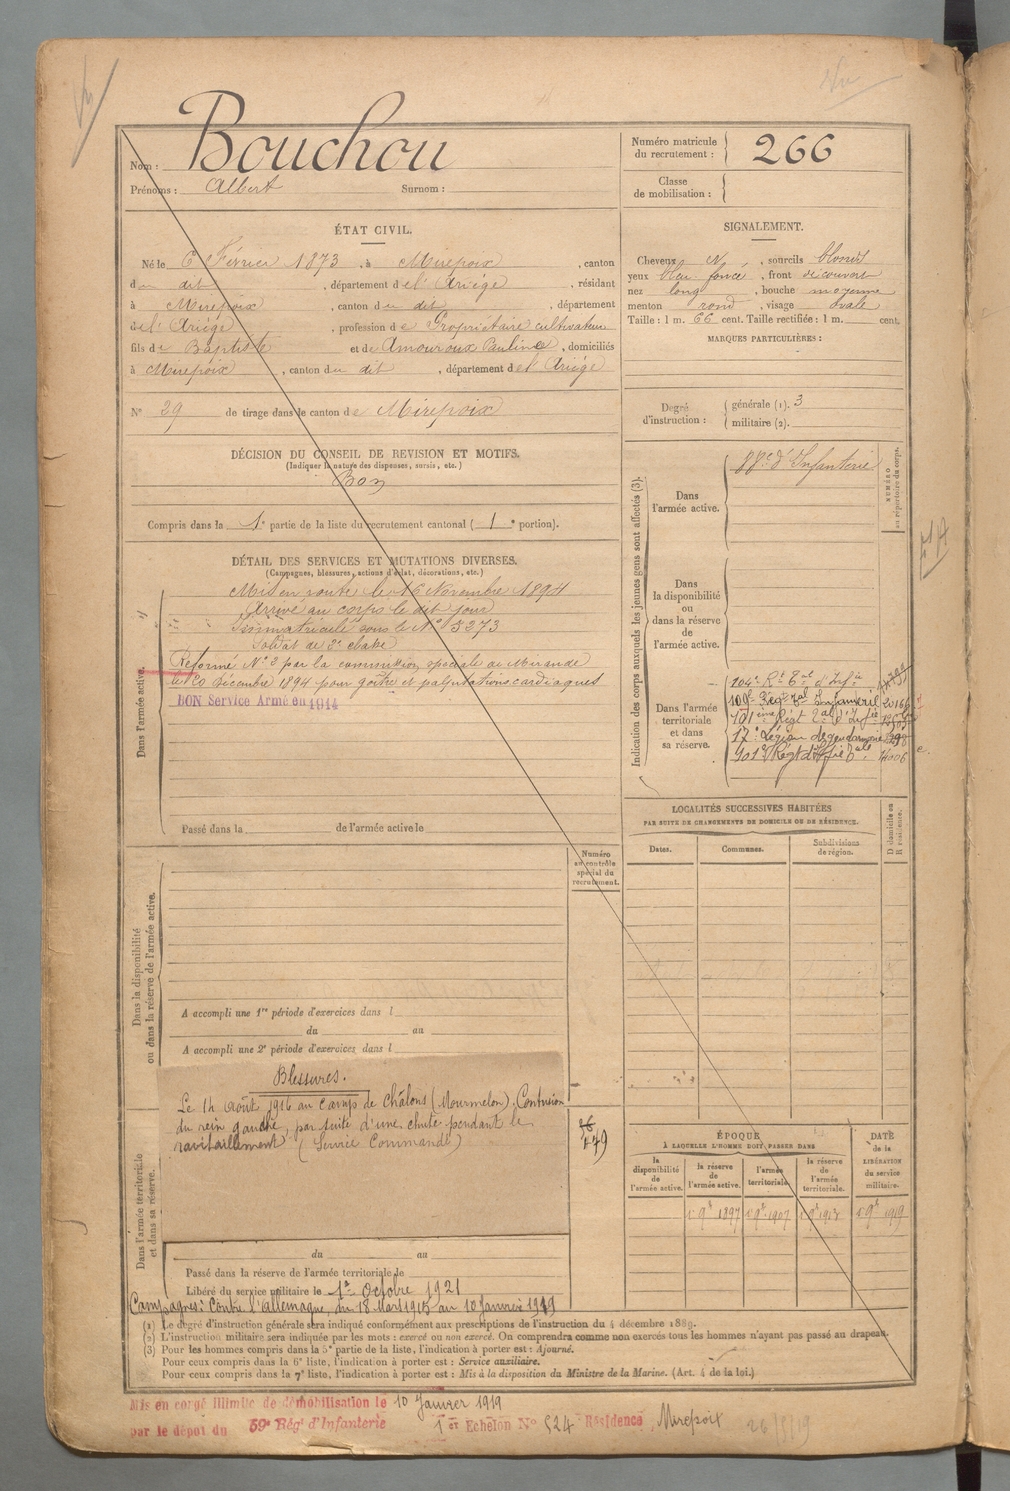 Nom : Bouchou
Prénoms : Albert Surnom :
Numéro matricule du recrutement : 266
Classe de mobilisation :
ÉTAT CIVIL.
Né le 6 Février 1873, à Mirepoix, canton
du dit, département de l'Ariège, résidant
à Mirepoix, canton du dit, département
de l'Ariège, profession de Propriétaire cultivateur
fils de Baptiste et de Amouroux Pauline, domiciliés
à Mirepoix, canton du dit, département de l'Ariège
N° 29 de tirage dans le canton de Mirepoix
SIGNALEMENT.
Cheveux N, sourcils blonds
yeux bleu foncé, front découvert
nez long, bouche moyenne
menton rond, visage ovale
Taille : 1 m. 66 cent. Taille rectifiée : 1 m. cent.
MARQUES PARTICULIÈRES :
Degré d'instruction : générale (1). 3
militaire (2).
DÉCISION DU CONSEIL DE REVISION ET MOTIFS.
(Indiquer la nature des dispenses, sursis, etc.)
Bon
Compris dans la 1e partie de la liste du recrutement cantonal (1e portion).
DÉTAIL DES SERVICES ET MUTATIONS DIVERSES.
(Campagnes, blessures, actions d'éclat, décorations, etc.)
Dans l'armée active.
Mis en route le 16 Novembre 1894
Arrivé au corps le dit jour
Immatriculé sous le N° 5273
Soldat de 2e classe
Réformé N° 2 par la commission spéciale de Mirande
le 20 Décembre 1894 pour goitre et palpitations cardiaques
BON Service Armé en 1914
Passé dans la de l'armée active le
Indication des corps auxquels les jeunes gens sont affectés (3).
NUMÉRO au répertoire du corps.
Dans l'armée active.
88e d'Infanterie
Dans la disponibilité ou dans la réserve de l'armée active.
Dans l'armée territoriale et dans sa réserve.
104e Rt Tal d'Infie
109e Régt Tal Infanterie
101eme Régt Tal d'Infie
17e Légion de gendarmerie
101e Régt d'Infie Tale
LOCALITÉS SUCCESSIVES HABITÉES
PAR SUITE DE CHANGEMENTS DE DOMICILE OU DE RÉSIDENCE.
D domicile ou R résidence.
Dates. Communes. Subdivisions de région.
Numéro au contrôle spécial du recrutement.
Dans la disponibilité ou dans la réserve de l'armée active.
A accompli une 1re période d'exercices dans l
du au
A accompli une 2e période d'exercices dans l
Blessures.
Le 14 Août 1916 au camp de Châlons (Mourmelon). Contusion
du rein gauche, par suite d'une chute pendant le
ravitaillement (Service Commandé)
179
Dans l'armée territoriale et dans sa réserve.
du au
Passé dans la réserve de l'armée territoriale le
Libéré du service militaire le 1er Octobre 1921
Campagnes : Contre l'Allemagne, du 18 Mars 1915 au 10 Janvier 1919
ÉPOQUE
À LAQUELLE L'HOMME DOIT PASSER DANS
la disponibilité de l'armée active.
la réserve de l'armée active.
l'armée territoriale.
la réserve de l'armée territoriale.
DATE de la LIBÉRATION du service militaire.
1897 1907 1913 1919
(1) Le degré d'instruction générale sera indiqué conformément aux prescriptions de l'instruction du 4 décembre 1889.
(2) L'instruction militaire sera indiquée par les mots : exercé ou non exercé. On comprendra comme non exercés tous les hommes n'ayant pas passé au drapeau.
(3) Pour les hommes compris dans la 5e partie de la liste, l'indication à porter est : Ajourné.
Pour ceux compris dans la 6e liste, l'indication à porter est : Service auxiliaire.
Pour ceux compris dans la 7e liste, l'indication à porter est : Mis à la disposition du Ministre de la Marine. (Art. 4 de la loi.)
Mis en congé illimité de démobilisation le 10 Janvier 1919
par le dépôt du 59e Régt d'Infanterie 1er Echelon N° 524 Résidence Mirepoix